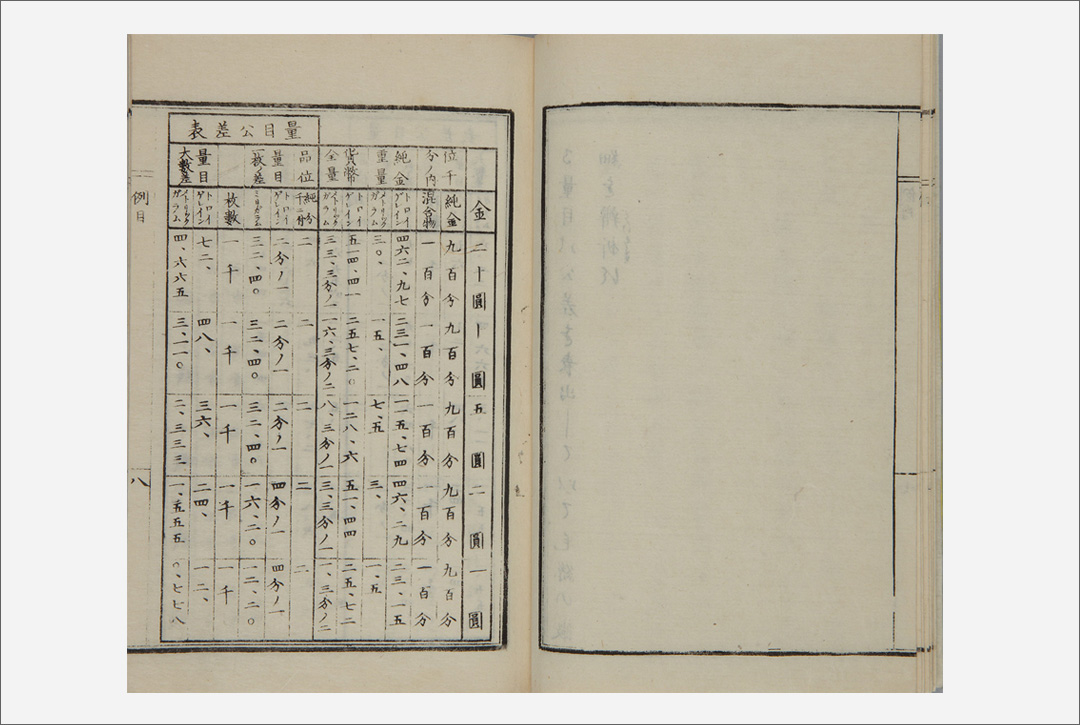 金 二十圓 十圓 五圓 二圓 一圓
位千分ノ内
純金 九百分 九百分 九百分 九百分 九百分
混合物 一百分 一百分 一百分 一百分 一百分
純金 トロイゲレイン 四六二、九七 二三一、四八 一一五、七四 四六、二九 二三、一五
重量 メトリックガラム 三〇、 一五、 七、五 三、 一、五
貨幣 トロイゲレイン 五一四、四一 二五七、二〇 一二八、六 五一、四四 二五、七二
全量 メトリックガラム 三三、三分ノ一 一六、三分ノ二 八、三分ノ一 三、三分ノ一 一、三分ノ二
量目公差表
品位 純分千二付 二 二 二 二 二
量目 トロイゲレイン 二分ノ一 二分ノ一 二分ノ一 四分ノ一 四分ノ一
一枚ノ差 ミリガラム 三二、四〇 三二、四〇 三二、四〇 一六、二〇 一二、二〇
枚數 一千 一千 一千 一千 一千
量目 トロイゲレイン 七二、 四八、 三六、 二四、 一二、
大數差 メトリックガラム 四、六六五 三、一一〇 二、三三三 一、五五五 〇、七七八
例目 八